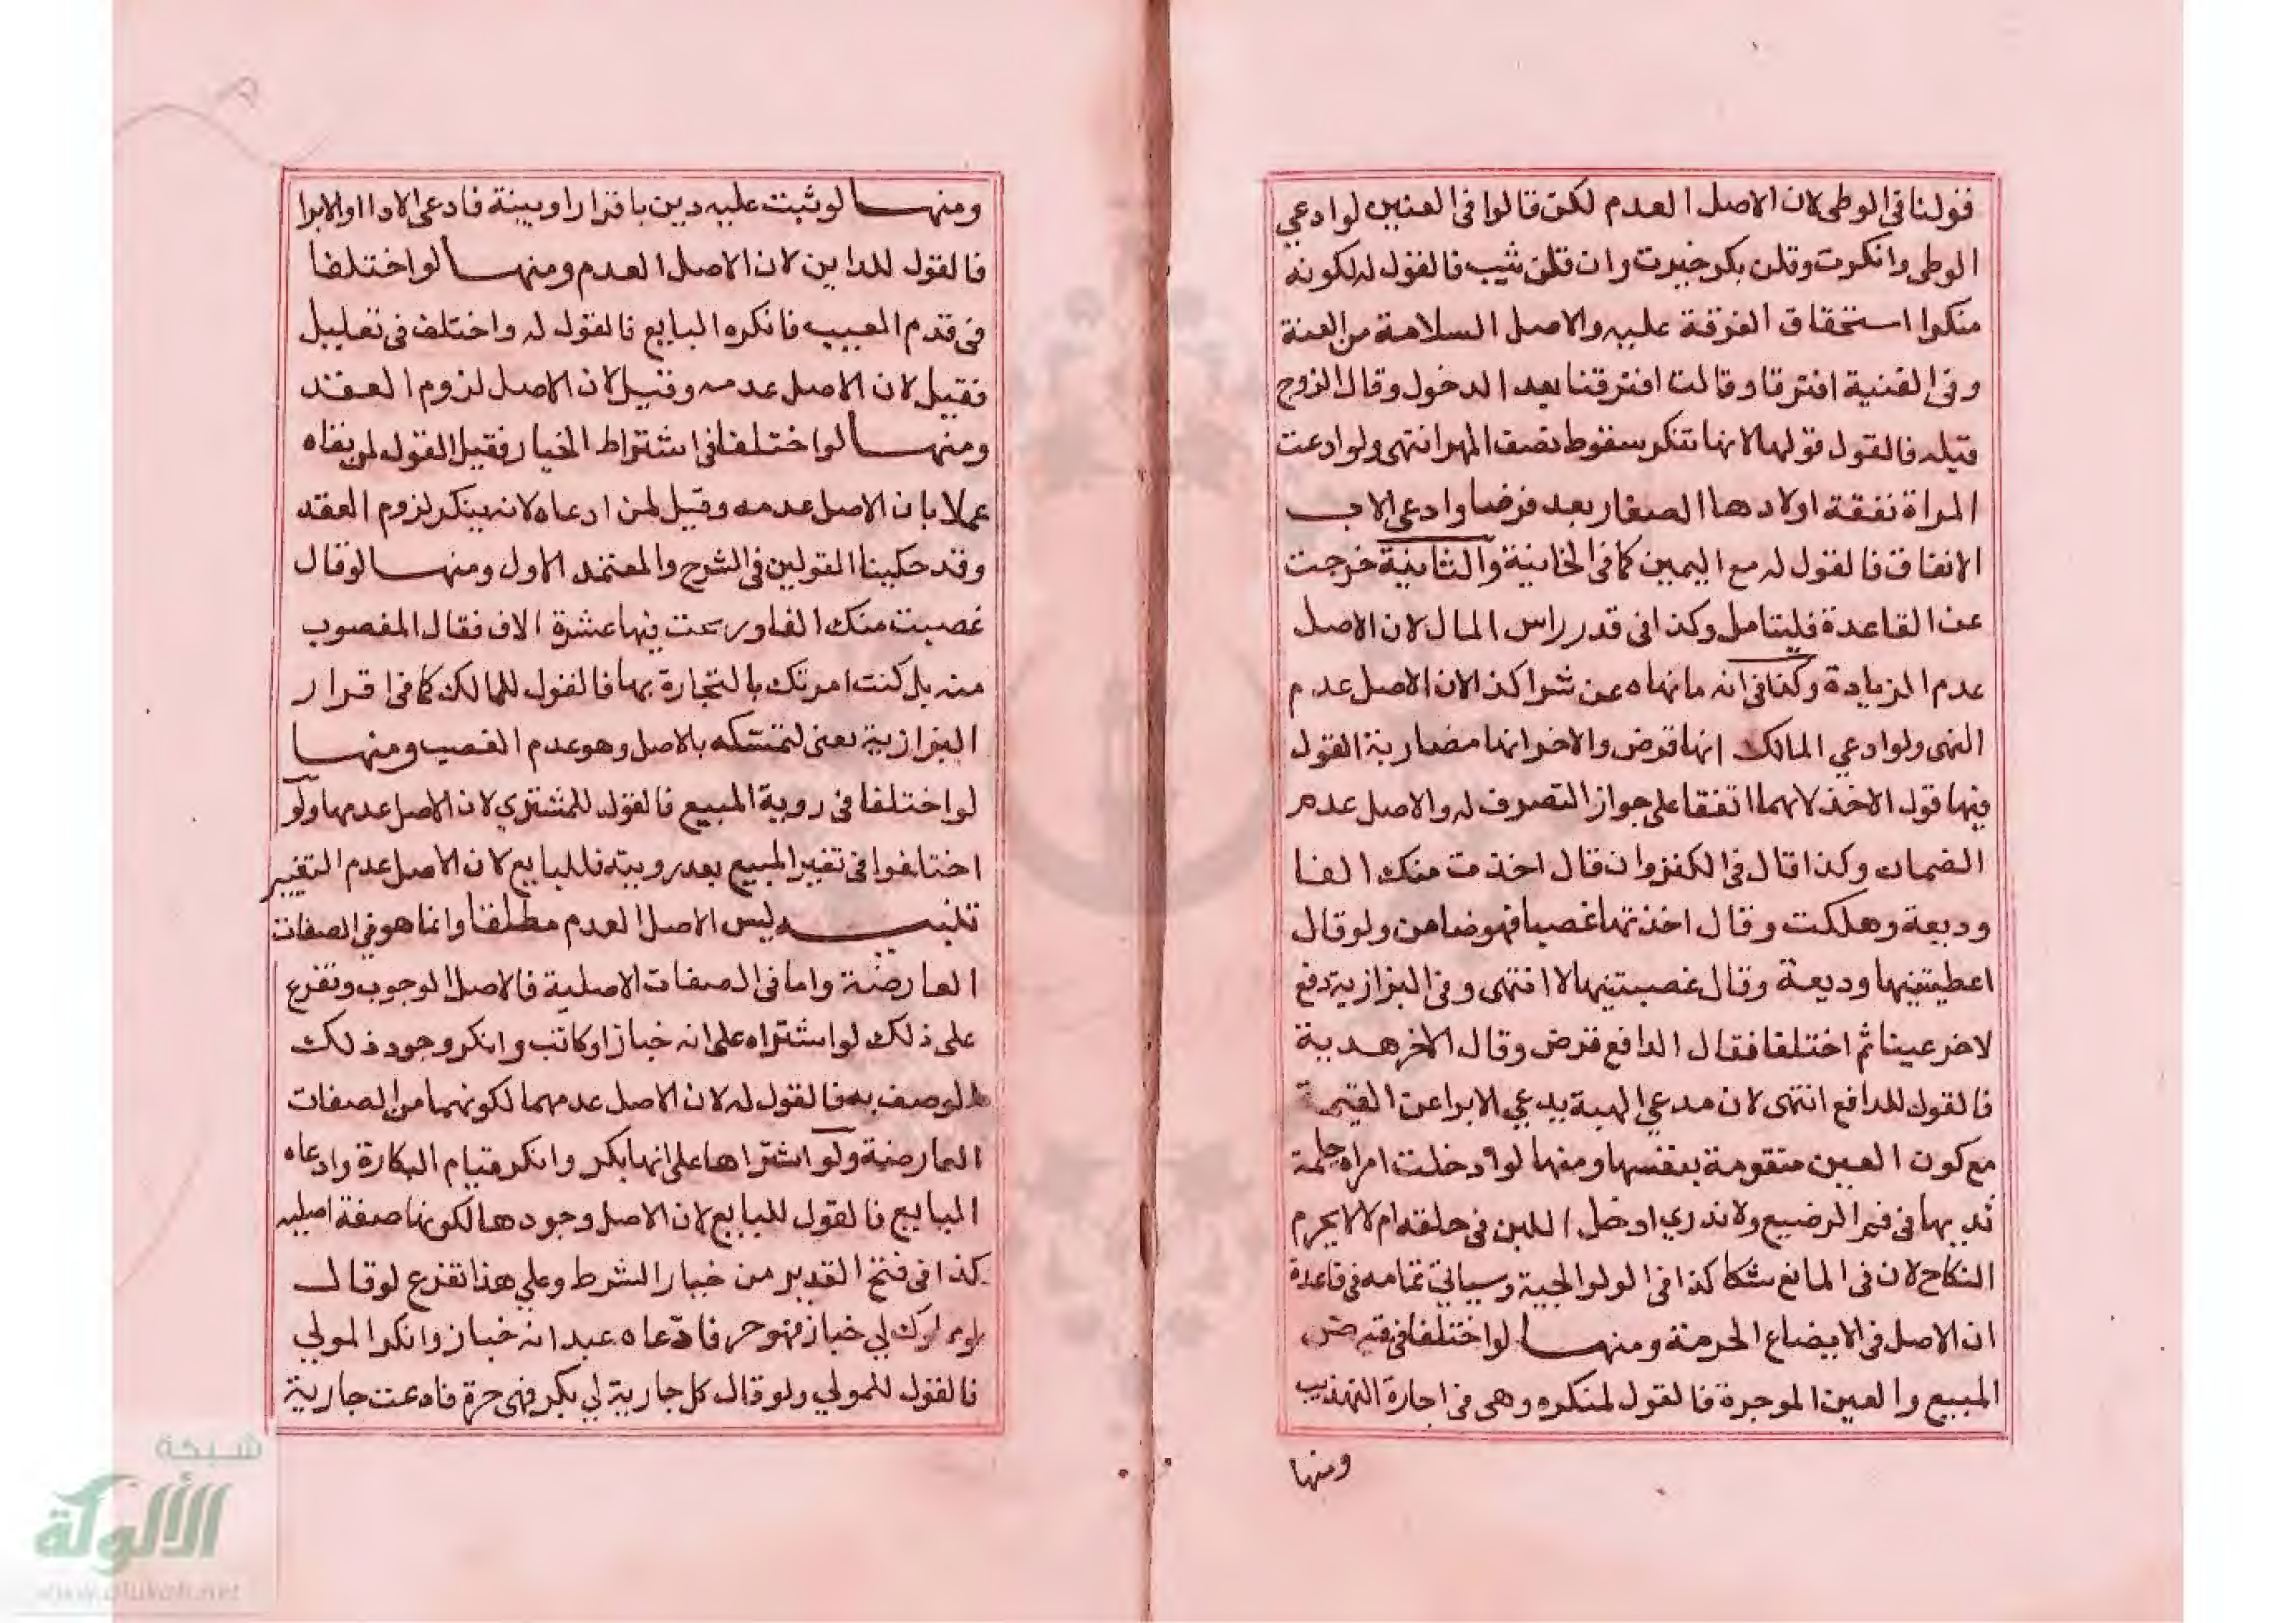 قولنا فى الوطى لان الاصل العدم لكن قالوا فى العنين لوادعي
الوطى وانكرت وقلن بكر خيرت وان قلن ثيب فالقول له لكونه
منكرا استحقاق الفرقة عليه والاصل السلامة من العنة
وفى القنية افترقا وقالت افترقنا بعد الدخول وقال الزوج
قبله فالقول قولها لانها تنكر سقوط نصف المهر انتهى ولوادعت
المراة نفقة اولادها الصغار بعد فرضها وادعى الاب
الانفاق فالقول له مع اليمين كما فى الخانية والثانية خرجت
عن القاعدة فليتامل وكذا فى قدر راس المال لان الاصل
عدم الزيادة وكذا فى انه مانهاه عن شرا كذا لان الاصل عدم
النهى ولوادعي المالك انها قرض والاخر انها مضاربة القول
فيها قول الاخذ لانهما اتفقا على جواز التصرف له والاصل عدم
الضمان وكذا قال فى الكنز وان قال اخذت منك الفا
وديعة وهلكت وقال اخذتها غصبا فهو ضامن ولو قال
اعطيتنيها وديعة وقال غصبتنيها لا انتهى وفى البزازية دفع
لاخر عينا ثم اختلفا فقال الدافع قرض وقال الاخر هدية
فالقول للدافع انتهى لان مدعي الهبة يدعي الابرا عن القيمة
مع كون العين متقومة بنفسها ومنها لو ادخلت امراة حلمة
ثديها فى فم الرضيع ولا ندري ادخل اللبن فى حلقه ام لا لا يحرم
النكاح لان فى المانع شكا كذا فى الولوالجية وسياتي تمامه فى قاعدة
ان الاصل فى الابضاع الحرمة ومنها لواختلفا فى قبض
المبيع والعين الموجرة فالقول لمنكره وهى فى اجارة التهذيب
ومنها
ومنها لوثبت عليه دين باقرار اوبينة فادعى الادا اوالابرا
فالقول للداين لان الاصل العدم ومنها لواختلفا
فى قدم العيب فانكره البايع فالقول له واختلف فى تعليل
فقيل لان الاصل عدمه وقيل لان الاصل لزوم العقد
ومنها لواختلفا فى اشتراط الخيار فقيل القول لمن نفاه
عملا بان الاصل عدمه وقيل لمن ادعاه لانه ينكر لزوم العقد
وقد حكينا القولين فى الشرح والمعتمد الاول ومنها لوقال
غصبت منك الفا وربحت فيها عشرة الاف فقال المغصوب
منه بل كنت امرتك بالتجارة بها فالقول للمالك كما فى اقرار
البزازية يعنى لتمسكه بالاصل وهو عدم الغصب ومنها
لواختلفا فى روية المبيع فالقول للمشتري لان الاصل عدمها ولو
اختلفوا فى تغير المبيع بعد رويته فللبايع لان الاصل عدم التغيير
تنبيه ليس الاصل العدم مطلقا وانما هو فى الصفات
العارضة واما فى الصفات الاصلية فالاصل الوجوب وتفرع
على ذلك لواشتراه على انه خباز اوكاتب وانكر وجود ذلك
الوصف به فالقول له لان الاصل عدمهما لكونهما من الصفات
العارضة ولو اشتراها على انها بكر وانكر قيام البكارة وادعاه
البايع فالقول للبايع لان الاصل وجودها لكونها صفة اصلية
كذا فى فتح القدير من خيار الشرط وعلي هذا تفرع لوقال
لي خباز فهو حر فادعاه عبد انه خباز وانكر المولي
فالقول للمولي ولوقال كل جارية لي بكر فهى حرة فادعت جارية
شبكة
الألوكة
www.alukah.net